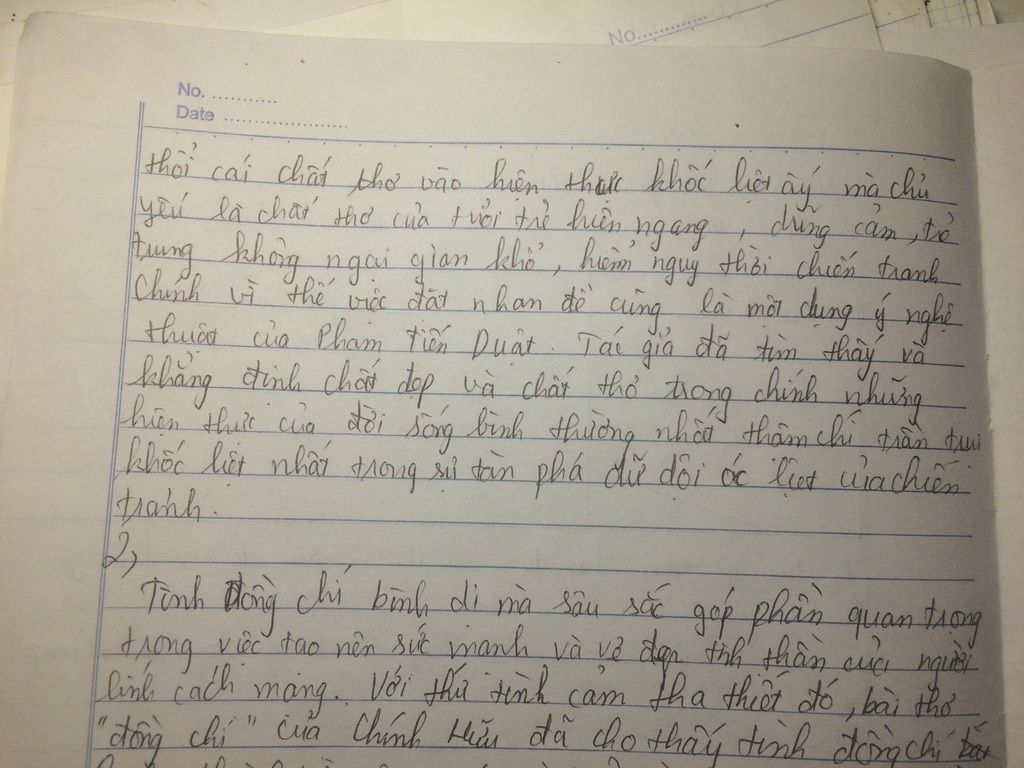 No..............
No. ............
Date ......................
thổi cái chất thơ vào hiện thực khốc liệt ấy mà chủ
yếu là chất thơ của tuổi trẻ hiên ngang, dũng cảm, trẻ
trung không ngại gian khổ, hiểm nguy thời chiến tranh
Chính vì thế việc đặt nhan đề cũng là một dụng ý nghệ
thuật của Phạm Tiến Duật. Tác giả đã tìm thấy và
khẳng định chất đẹp và chất thơ trong chính những
hiện thực của đời sống bình thường nhất thậm chí trần trụi
khốc liệt nhất trong sự tàn phá dữ dội ác liệt của chiến
tranh.
2,
Tình đồng chí bình dị mà sâu sắc góp phần quan trọng
trong việc tạo nên sức mạnh và vẻ đẹp tinh thần của người
lính cách mạng. Với thứ tình cảm tha thiết đó, bài thơ
"đồng chí" của Chính Hữu đã cho thấy tình đồng chí